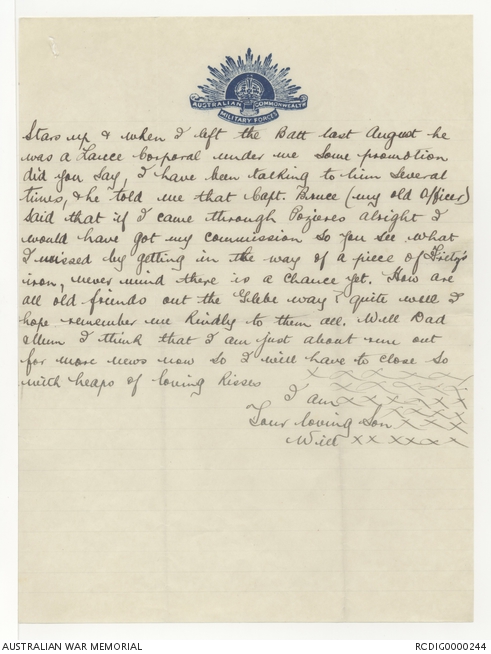 AUSTRALIAN COMMONWEALTH
MILITARY FORCES
Stars up & when I left the Batt last August he
was a Lance Corporal under me some promotion
did you say, I have been talking to him several
times, & he told me that Capt. Bruce (my old Officer)
said that if I came through Pozieres alright I
would have got my commission so you see what
I missed by getting in the way of a piece of Fritz's
iron, never mind there is a chance yet. How are
all old friends out the Glebe way, quite well I
hope remember me kindly to them all. Well Dad
& Mum I think that I am just about run out
for more news now so I will have to close so
with heaps of loving kisses x x x x x x x
I am x x x x x x
Your loving Son x x x x
Will x x x x x x
AUSTRALIAN WAR MEMORIAL
RCDIG0000244